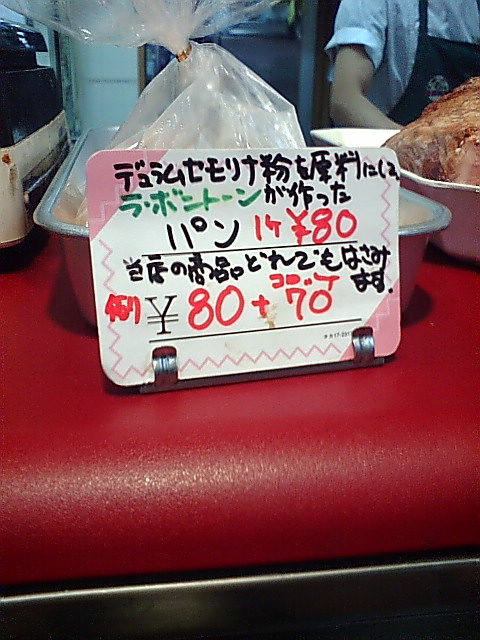 デュラムセモリナ粉を原料にして
ラ・ボントーンが作った
パン 1ケ ¥80
当店の商品。どれでもはさみ
ます。
コロッケ
例) ¥80+70